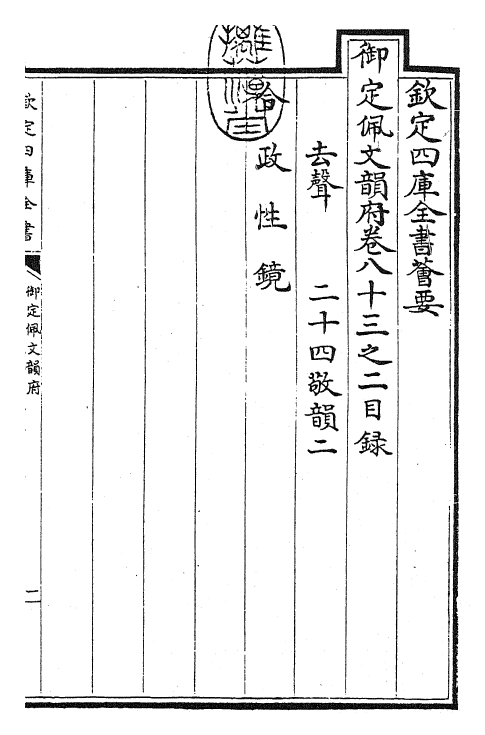 欽定四庫全書薈要
御定佩文韻府卷八十三之二目録
去聲 二十四敬韻二
令 政 性 鏡
欽定四庫全書
御定佩文韻府